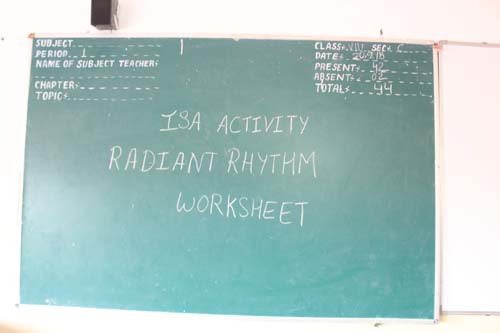 SUBJECT
PERIOD 1
NAME OF SUBJECT TEACHER:
CHAPTER:
TOPIC:
CLASS: VIII SEC: C
DATE: 26.9.18
PRESENT: 42
ABSENT: 02
TOTAL: 44
ISA ACTIVITY
RADIANT RHYTHM
WORKSHEET